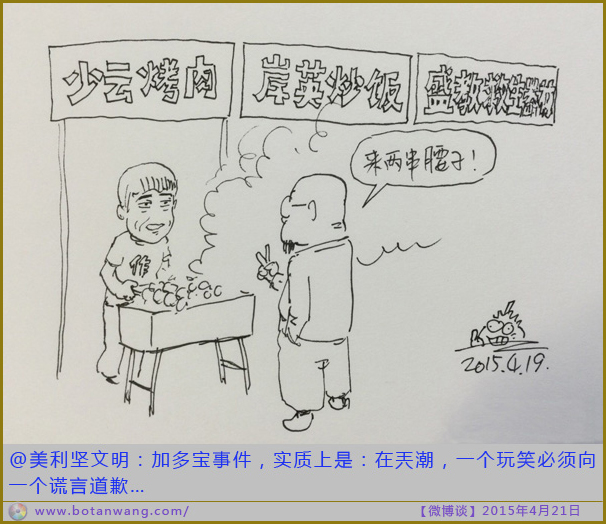 少云烤肉
岸英炒饭
盛教救生器材
来两串腰子！
作
2015.4.19.
@美利坚文明：加多宝事件，实质上是：在天潮，一个玩笑必须向
一个谎言道歉...
www.botanwang.com/
【微博谈】2015年4月21日